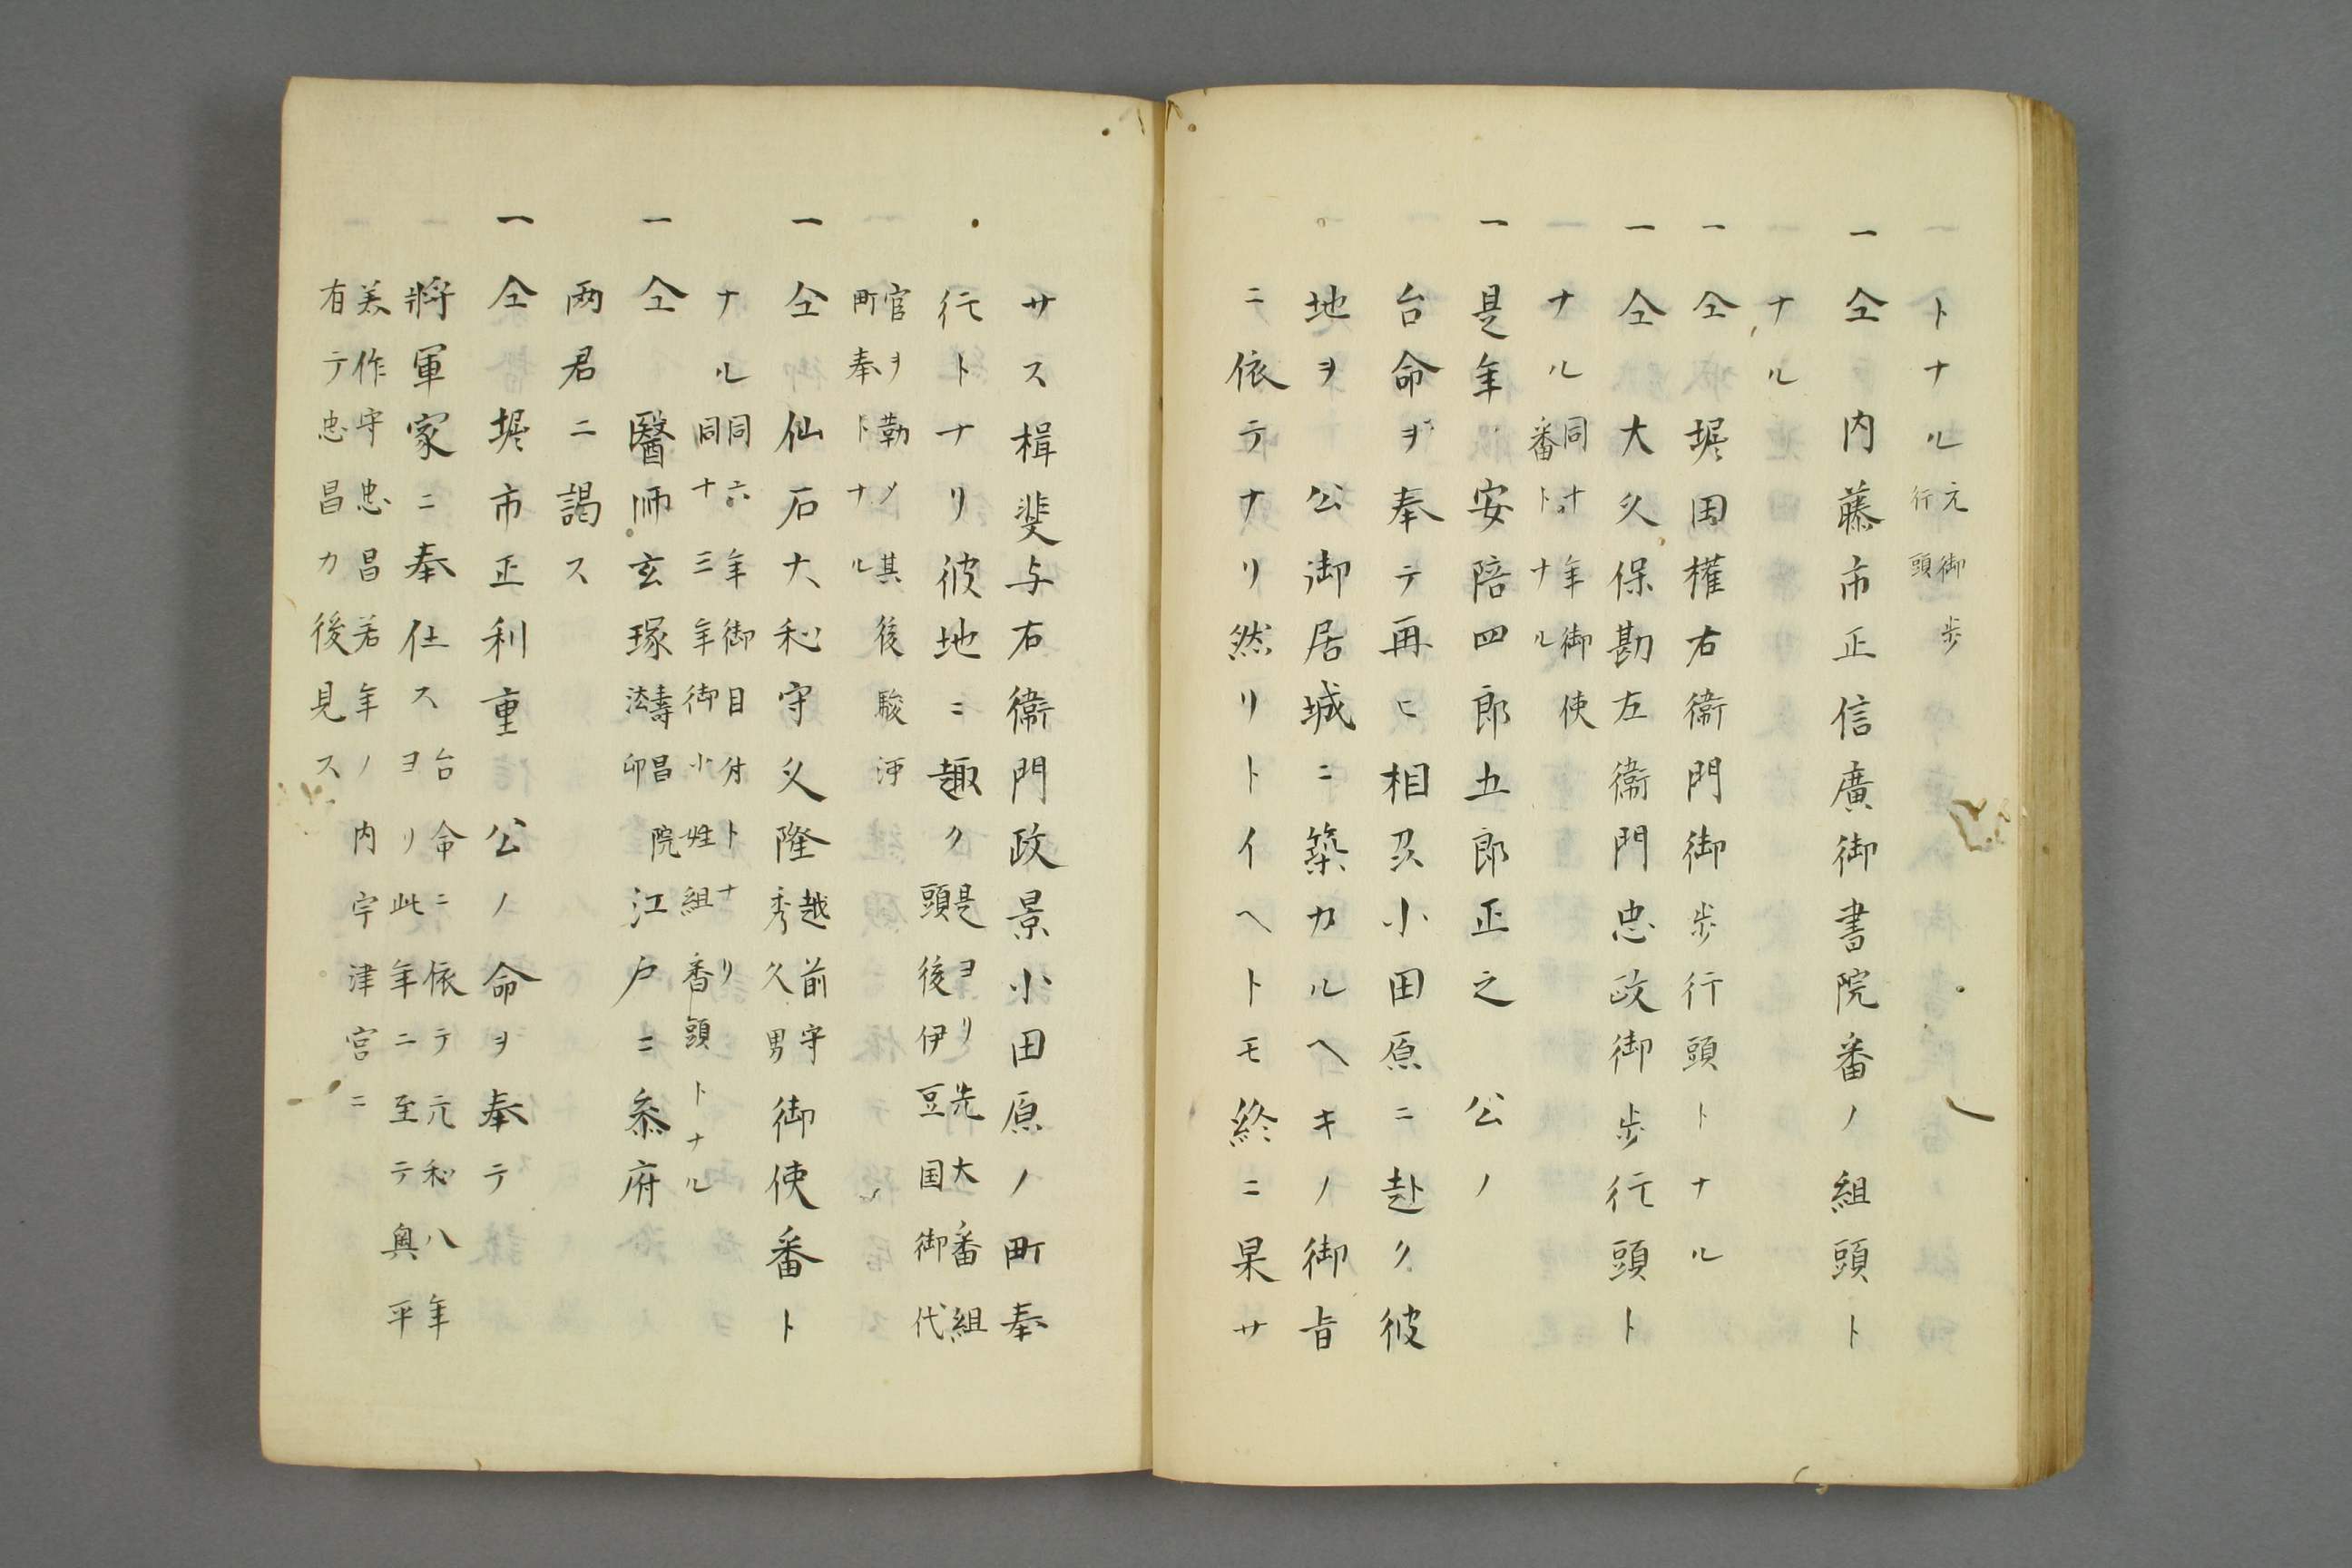 トナル元御歩
行頭
一仝　内藤市正信廣御書院番ノ組頭ト
ナル
一仝　堀田權右衛門御歩行頭トナル
一仝　大久保勘左衛門忠政御歩行頭ト
ナル同十年御使
番トナル
一是年　安陪四郎五郎正之　公ノ
台命ヲ奉テ再ヒ相及小田原ニ赴ク彼
地ヲ　公御居城ニ築カルヘキノ御旨
ニ依テナリ然リトイヘトモ終ニ果サ
サス楫斐与右衛門政景小田原ノ町奉
行トナリ彼地ニ趣ク是ヨリ先大番組
頭後伊豆国御代
官ヲ勤ノ其後駿河
町奉トナル
一仝　仙石大和守久隆越前守
秀久男御使番ト
ナル同六年御目付トナリ
同十三年御小姓組番頭トナル
一仝　醫師玄琢壽昌院
法印江戸ニ参府
両君ニ謁ス
一仝　堀市正利重　公ノ命ヲ奉テ
將軍家ニ奉仕ス台命ニ依テ元和八年
ヨリ此年ニ至テ奥平
美作守忠昌若年ノ内宇津宮ニ
有テ忠昌カ後見ス